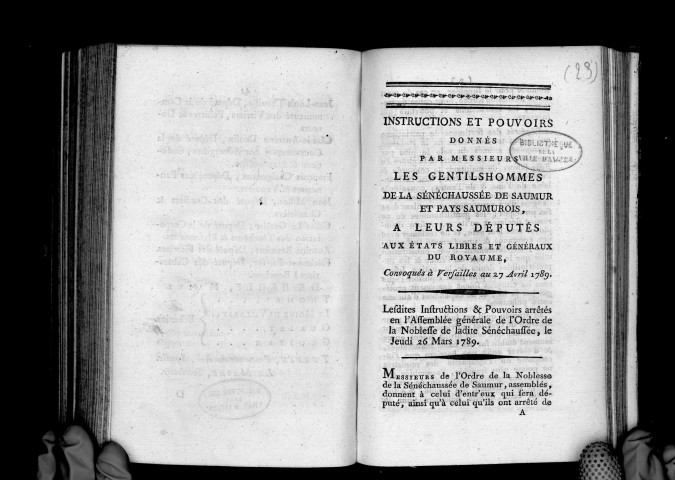 (29)
INSTRUCTIONS ET POUVOIRS
DONNÉS
PAR MESSIEURS
LES GENTILSHOMMES
DE LA SÉNÉCHAUSSÉE DE SAUMUR
ET PAYS SAUMUROIS,
A LEURS DÉPUTÉS
AUX ÉTATS LIBRES ET GÉNÉRAUX
DU ROYAUME,
Convoqués à Versailles au 27 Avril 1789.
BIBLIOTHÈQUE
DE LA
VILLE
Lesdites Instructions & Pouvoirs arrêtés
en l'Assemblée générale de l'Ordre de
la Noblesse de ladite Sénéchaussée, le
Jeudi 26 Mars 1789.
MESSIEURS de l'Ordre de la Noblesse
de la Sénéchaussée de Saumur, assemblés,
donnent à celui d'entr'eux qui sera dé-
puté, ainsi qu'à celui qu'ils ont arrêté de
A